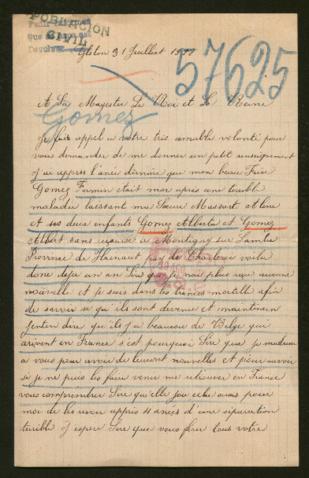 POBLACION
CIVIL
57625
31 Juillet 1917
A Sa Majester Le Roi et La Reine
Gomez
Je fais appel a votre très aimable volonté pour
vous demander de me donner un petit renseignement
j'ai appris l'anée dernière que mon beau Frère
Gomez Firmin était mor après une terrible
maladie laissant ma Sœur Messart
et ses deux enfants Gomez Alberta et Gomez
Albert sans a Montigny sur Sambre
Province de Hainaut pay de Charleroi voila
donc deja un an Sire que je nait plus aucune
nouvelle et je suis dans les trances mortelle afin
de savoir se qu'ils sont devenue et maintenain
j'enten dire qu'ils y a beaucoup de Belge qui
arrivent en France s'est pourquoi Sire que je
a vous pour avoir de leurs nouvelles et pour savoir
si je ne puis les faire venir me retrouver en France
vous comprendrer Sire qu'elle joie cela serais pour
moi de les revoir apprès 4 anées d'une séparation
terible j'espère Sire que vous faire tous votre